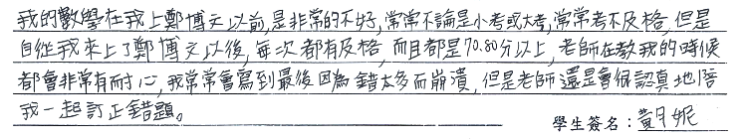 我的數學在我上鄭博文以前,是非常的不好,常常不論是小考或大考,常常考不及格,但是
自從我來上了鄭博文以後,每次都有及格,而且都是70.80分以上,老師在教我的時候
都會非常有耐心,我常常會寫到最後因為錯太多而崩潰,但是老師還是會很認真地陪
我一起訂正錯題。
學生簽名:黃妮